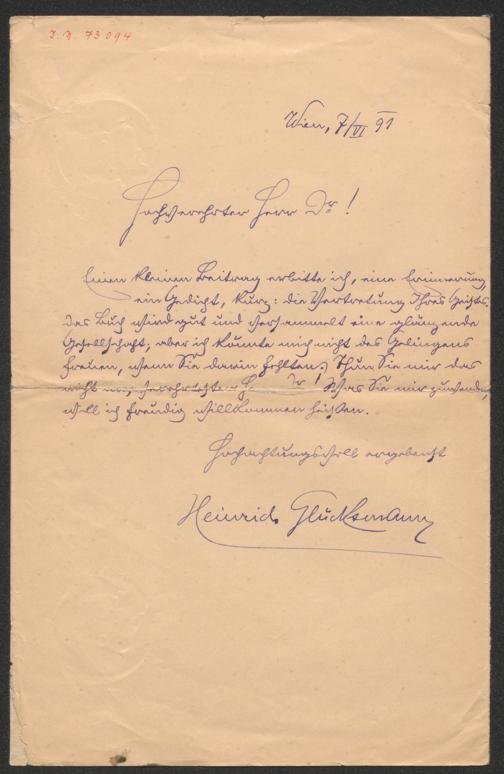 I. N. 73094
Wien, 7/VI 91
Hochverehrter Herr Dr!
Einen kleinen Beitrag erbitte ich, eine Erinnerung,
ein Gedicht, kurz: die Vertretung Ihres Geistes.
Das Buch wird gut und versammelt eine glänzende
Gesellschaft; aber ich könnte mich nicht des Gelingens
freuen, wenn Sie darin fehlten. Thun Sie mir das
nicht an, verehrtester H Dr! Was Sie mir zuwenden,
will ich freudig willkommen heißen.
Hochachtungsvoll ergebenst
Heinrich Glücksmann